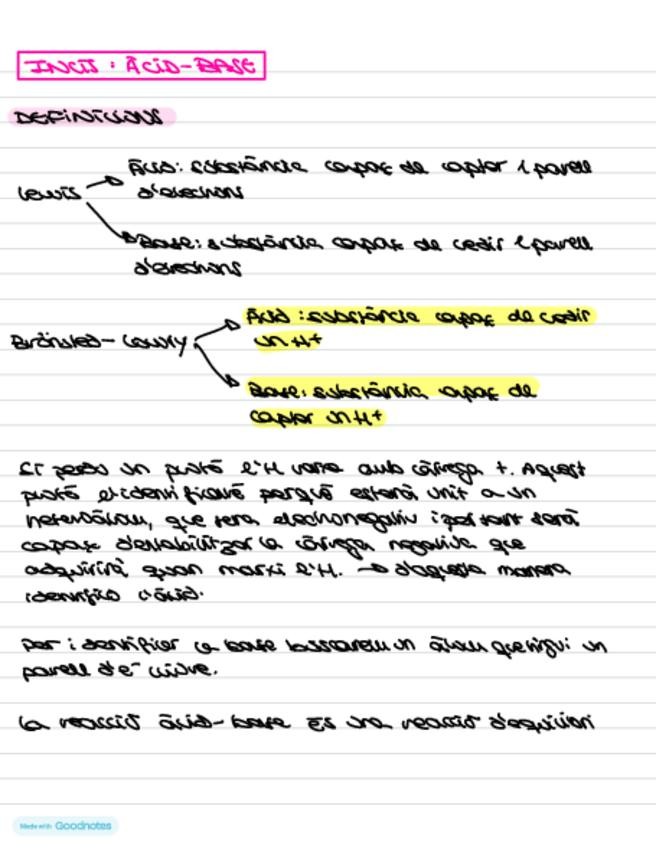 INCÍS: ÀCID-BASE
DEFINICIONS
Lewis
Àcid: substància capaç de captar 1 parell
d'electrons
Base: substància capaç de cedir 1 parell
d'electrons
Brönsted-Lowry
Àcid: substància capaç de cedir
un H+
Base: substància capaç de
captar un H+
Si perdo un protó l'H marxa amb càrrega +. Aquest
protó el identificaré perquè estarà unit a un
heteroàtom, que sera electronegatiu i per tant serà
capaç d'estabilitzar la càrrega negativa que
adquirirà quan marxi l'H. → d'aquesta manera
identifico l'àcid.
Per identificar la base buscarem un àtom que tingui un
parell d'e⁻ lliure.
La reacció àcid-base és una reacció d'equilibri
Made with Goodnotes